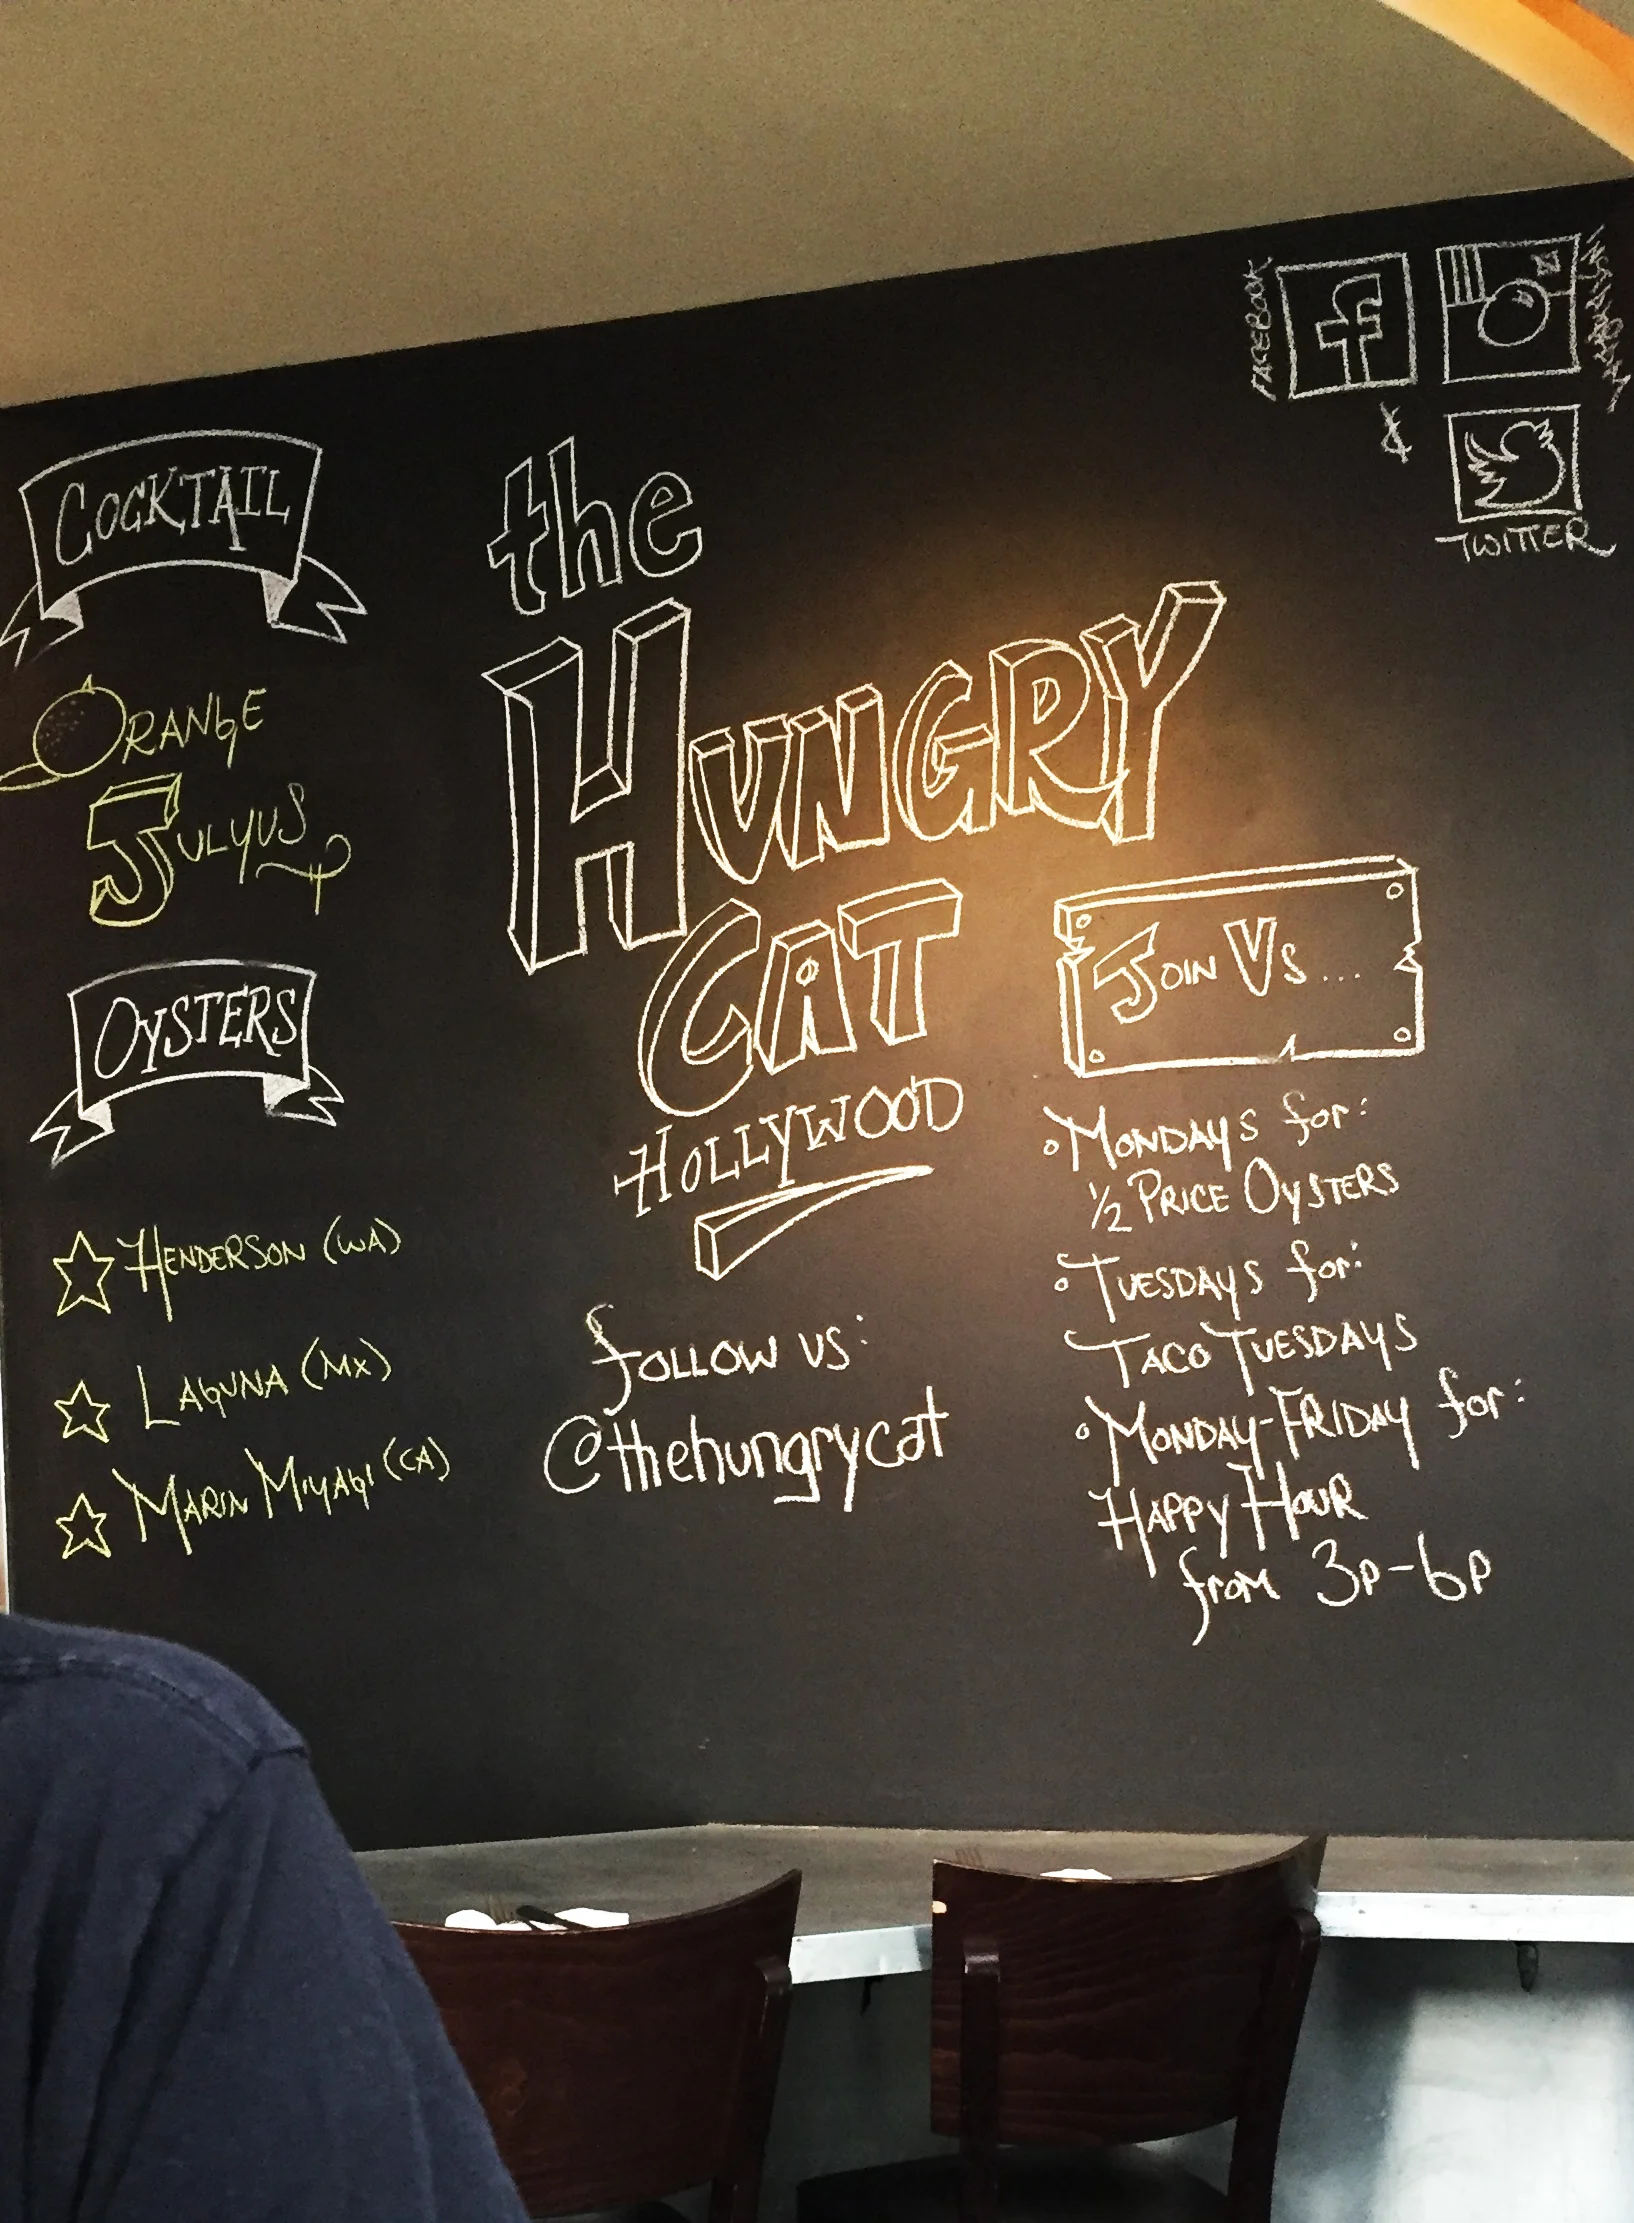 FACEBOOK
INSTAGRAM
&
TWITTER
COCKTAIL
ORANGE
JULYUS
OYSTERS
HENDERSON (WA)
LAGUNA (MX)
MARIN MIYAGI (CA)
the
HUNGRY
CAT
HOLLYWOOD
follow us:
@thehungrycat
JOIN US...
MONDAYS for:
1/2 PRICE OYSTERS
TUESDAYS for:
TACO TUESDAYS
MONDAY-FRIDAY for:
HAPPY HOUR
from 3P-6P